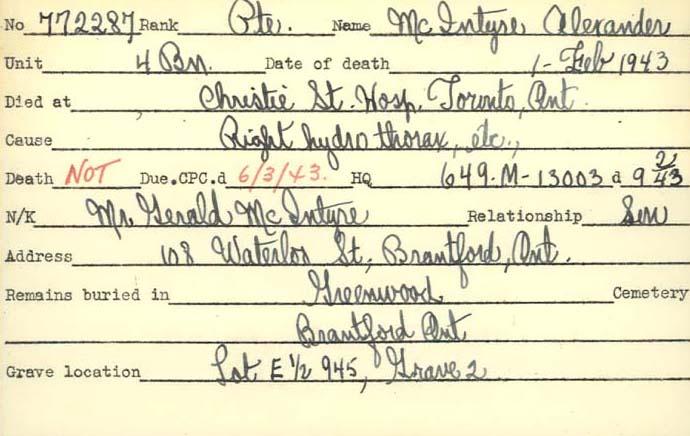 No 772287 Rank Pte. Name McIntyre Alexander
Unit 4 Bn. Date of death 1-Feb 1943
Died at Christie St. Hosp. Toronto, Ont.
Cause Right hydro thorax, etc.,
Death NOT Due.CPC.d 6/3/43. HQ 649-M-13003 d 9 2/43
N/K Mr. Gerald McIntyre Relationship Son
Address 108 Waterloo St., Brantford, Ont.
Remains buried in Greenwood Cemetery
Brantford Ont
Grave location Lot E 1/2 945, Grave 2